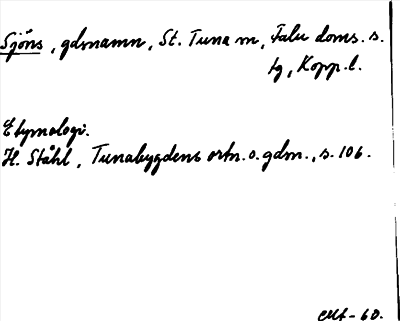 Sjöns, gdrnamn, St. Tuna sn, Falu doms. s.
tg, Kopp. l.
Etymologi.
H. Ståhl, Tunabygdens ortn. o. gdrn., s. 106.
-60.